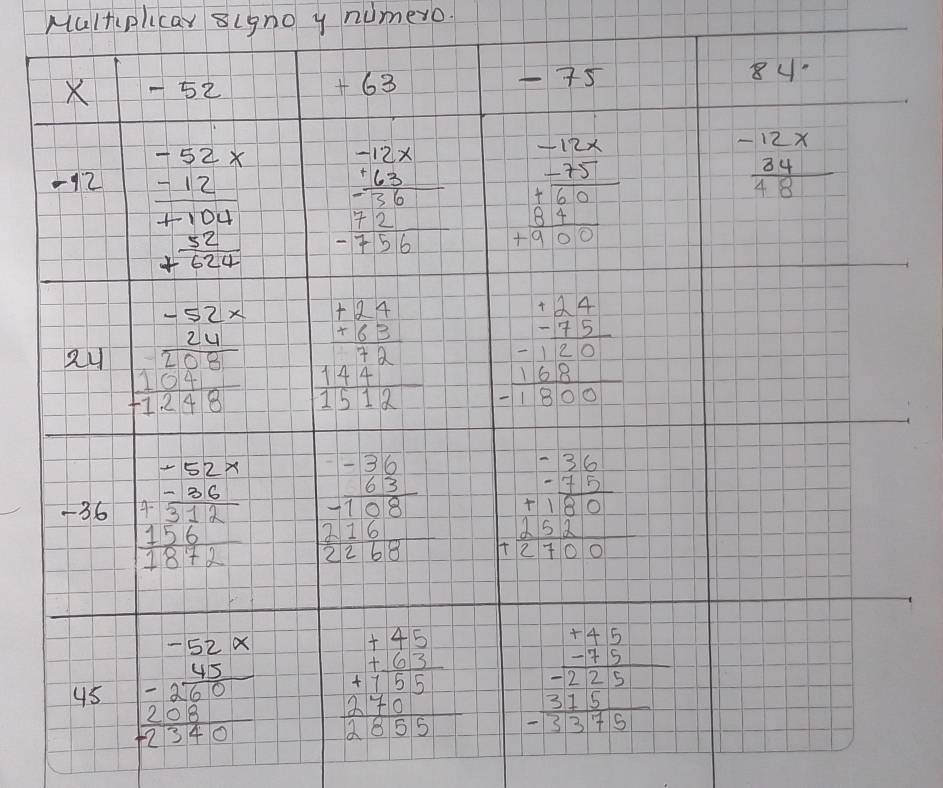 Multiplicar signo y número.
X -52 +63 -75 84.
-12
-52x
-12
+104
52
+624
-12x
+63
-36
72
-756
-12x
-75
+60
84
+900
-12x
34
48
24
-52x
24
208
104
-1248
+24
+63
72
144
1512
+24
-75
-120
168
-1800
-36
-52x
-36
+312
156
1872
-36
63
-108
216
2268
-36
-75
+180
252
+2700
45
-52x
45
-260
208
-2340
+45
+63
+155
270
2855
+45
-75
-225
315
-3375